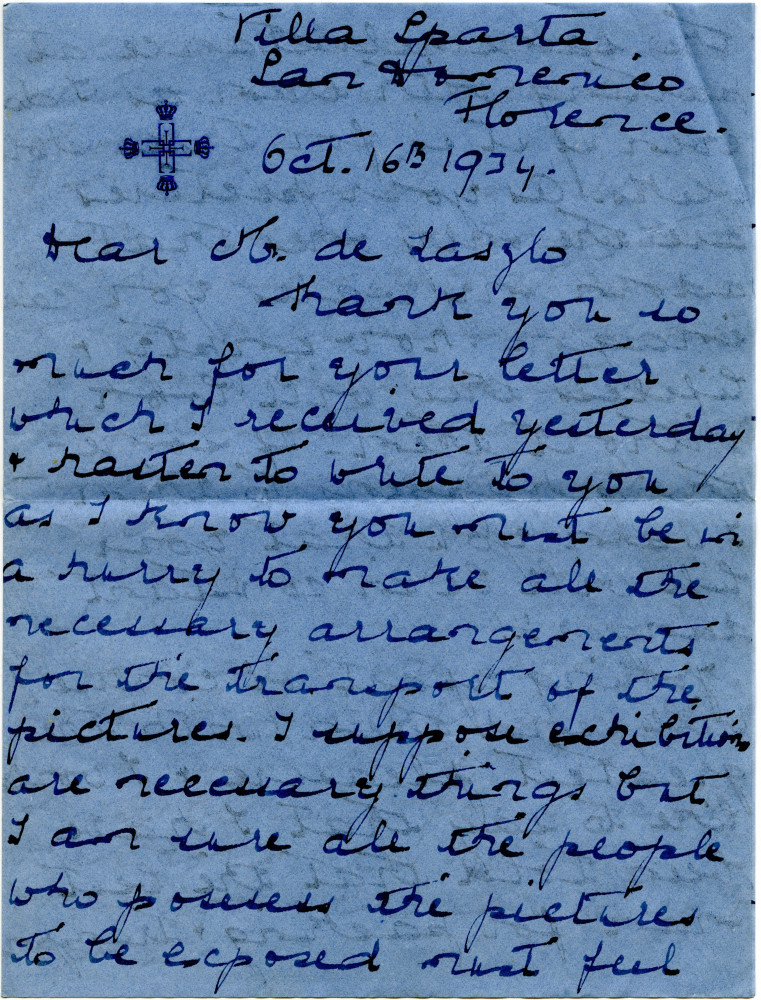 Villa Sparta
San Domenico
Florence.
Oct. 16th 1934.
Dear Mr. de Laszlo
Thank you so
much for your letter
which I received yesterday
& hasten to write to you
as I know you must be in
a hurry to make all the
necessary arrangements
for the transport of the
pictures. I suppose exhibitions
are necessary things but
I am sure all the people
who possess the pictures
to be exposed must feel